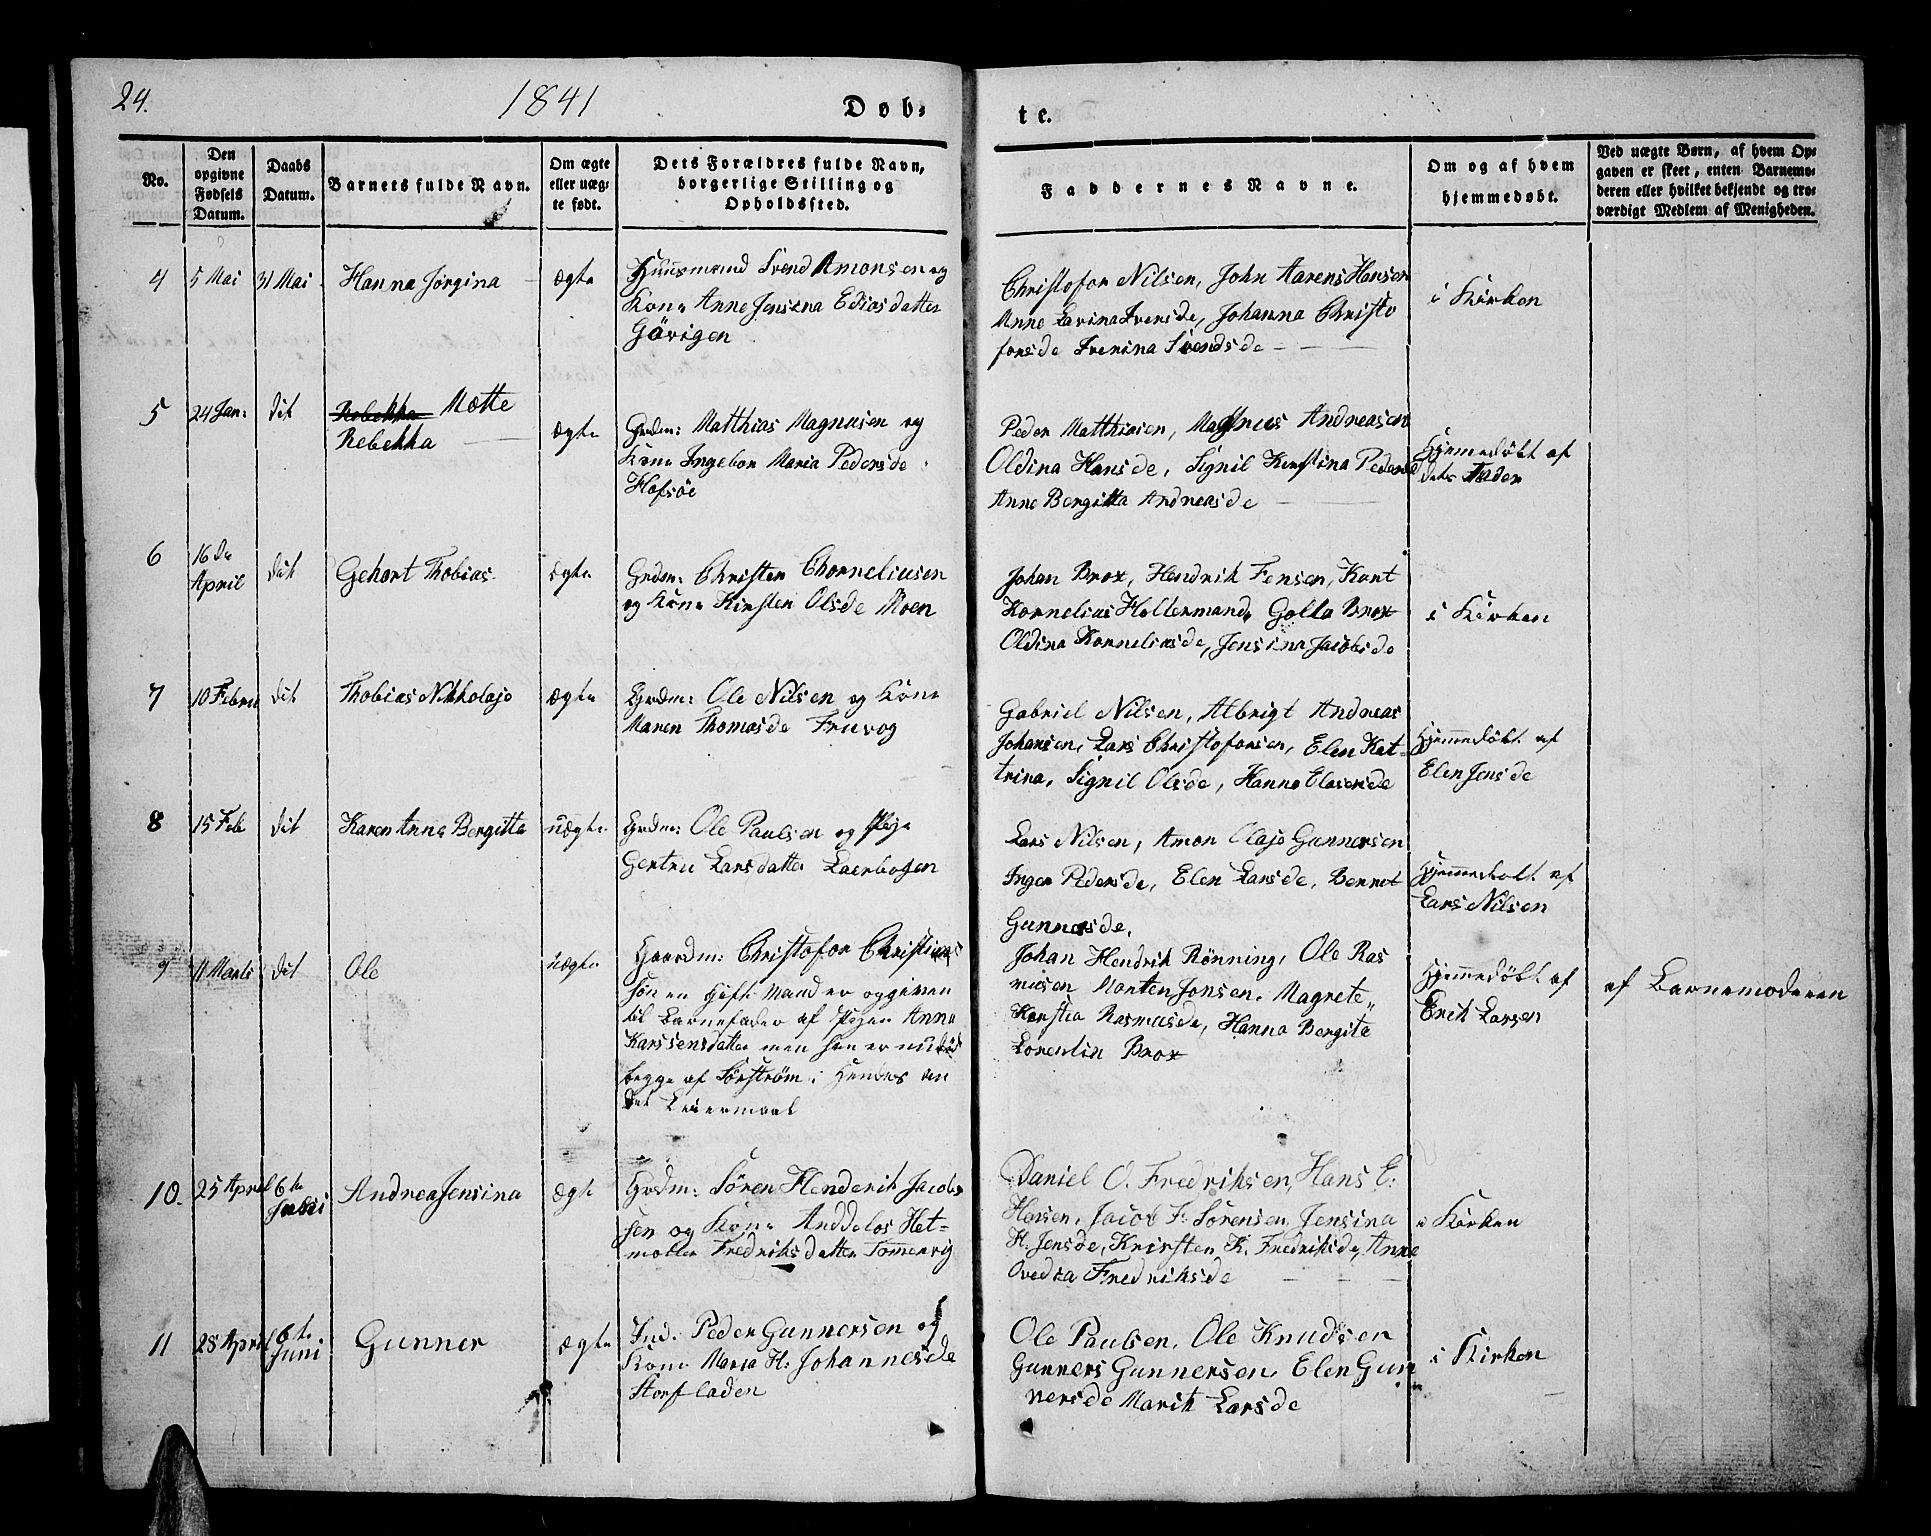 24.
1841
Døb-
te.
No.
Den
opgivne
Fødsels
Datum.
Daabs
Datum.
Barnets fulde Navn.
Om ægte
eller uæg-
te født.
Dets Forældres fulde Navn,
borgerlige Stilling og
Opholdssted.
Faddernes Navne.
Om og af hvem
hjemmedøbt.
Ved uægte Børn, af hvem Op-
gaven er skeet, enten Barnemo-
deren eller hvilket bekjendt og tro-
værdigt Medlem af Menigheden.
4
5 Mai
31 Mai
Hanna Jørgina
ægte
Huusmand Svend Amonsen og
Kone Anne Jensina Ediasdatter
Gövigen
Christofor Nilsen, John Aarens Hansen
Anne Lavina Iversde, Johanna Christo
forsde Iverina Svendsde
i Kirken
5
24 Jan:
dit
Rebekka Mætte
Rebekka
ægte
Grdm: Matthias Magnusen og
Kone Ingebor Maria Pedersde
Hofsöe
Peder Matthiasen, Magnus Andreasen
Oldina Hansde, Signil Kirstina Pedersd
Anne Bergitta Andreasde
Hjemedöbt af
dets Fader
6
16 de
April
dit
Gehart Thobias
ægte
Grdm: Christen Chorneliusen
og Kone Kirsten Olsde Moen
Johan Brox, Hendrik Jensen, Kont
Kornelias Hollermand, Golla Brox
Oldina Korneliasde, Jensina Jacobsde
i Kirken
7
10 Febru
dit
Thobias Nikkolaje
ægte
Grdm: Ole Nilsen og Kone
Maren Thomasde Fruvog
Gabriel Nilsen, Albrigt Andreas
Johansen, Lars Christoforsen, Elen Kat-
trina, Signil Olsde, Hanna Elasersde
Hjemmedöbt af
Elen Jensde
8
15 Feb
dit
Karen Anne Bergitta
uægte
Grdm: Ole Paulsen og Pige
Gertru Larsdatter Laerbogen
Lars Nilsen, Amon Olaje Gunnersen
Inger Pedersde, Elen Larsde, Bernet
Gunnersde,
Hjemmedobt af
Lars Nilsen
9
11 Marts
dit
Ole
uægte
Gaardm: Christofor Christians
søn en gift Mand er opgiven
til Barnefader af Pigen Anna
Karssensdatter men han er nu död
begge af Sörström i Hendes an
det Leiermaal
Johan Hendrik Rönning, Ole Ras
musen Morten Jonsen, Magrete
Karstia Rasmusde, Hanna Bergita
Lorentin Brox
Hjemmedöbt af
Erik Larsen
af Barnemoderen
10.
25 April
6te
Juni
Andrea Jensina
ægte
Grdm: Sören Henderik Jacob
sen og Kone Anddelos Het-
molla Fredriksdatter Tommervig
Daniel O. Fredriksen, Hans E.
Hansen, Jacob F. Sörensen, Jensina
H. Jensde, Kristen K. Fredriksde, Anne
Ovedia Fredriksde
i Kirken
11
28 April
6te
Juni
Gunner
ægte
Ind. Peder Gunnersen og
Kone Maria H. Johannesde
Storsladen
Ole Paulsen, Ole Knudsen
Gunners Gunnersen, Elen Gun
nersde Marit Larsde
i Kirken